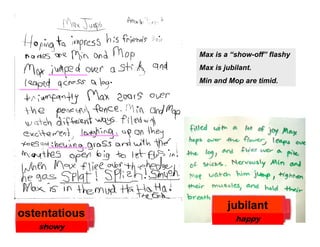 Max Jumps
Hoping to impress his friends
names are Min and Mop
Max jumped over a stick and
leaped across a log.
triumfantly Max soars over
the fence. Min and Mop
watch different ways filled
excitement, laughing, up on they
gross and with the
mouthes open big to let flies in.
When Max
he gos SPlat! SPlish! Smush
Max is in the mud Ha Ha Ha!
The End
Max is a “show-off” flashy
Max is jubilant.
Min and Mop are timid.
filled with a lot of joy Max
hops over the flower, leaps over
the log, and flies over a pile
of sticks. Nervously Min and
Mop watch him jump, tighten
their muscles, and hold their
breath
ostentatious
showy
jubilant
happy